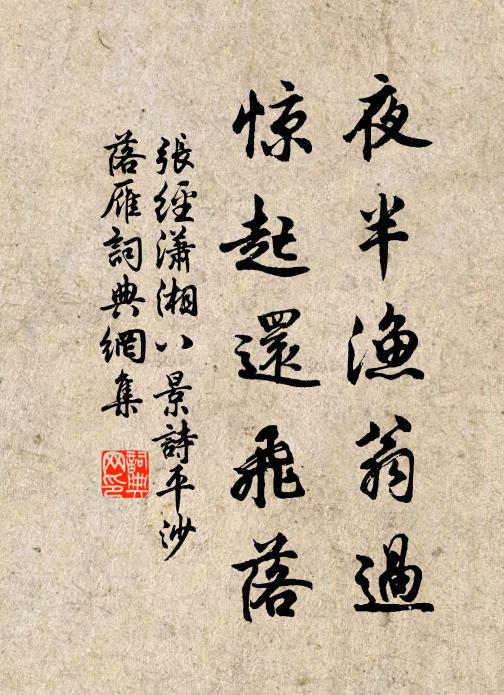 夜半漁翁過
惊起還飛落
張經瀟湘八景詩平沙
落雁詞典網集
詞典
网印